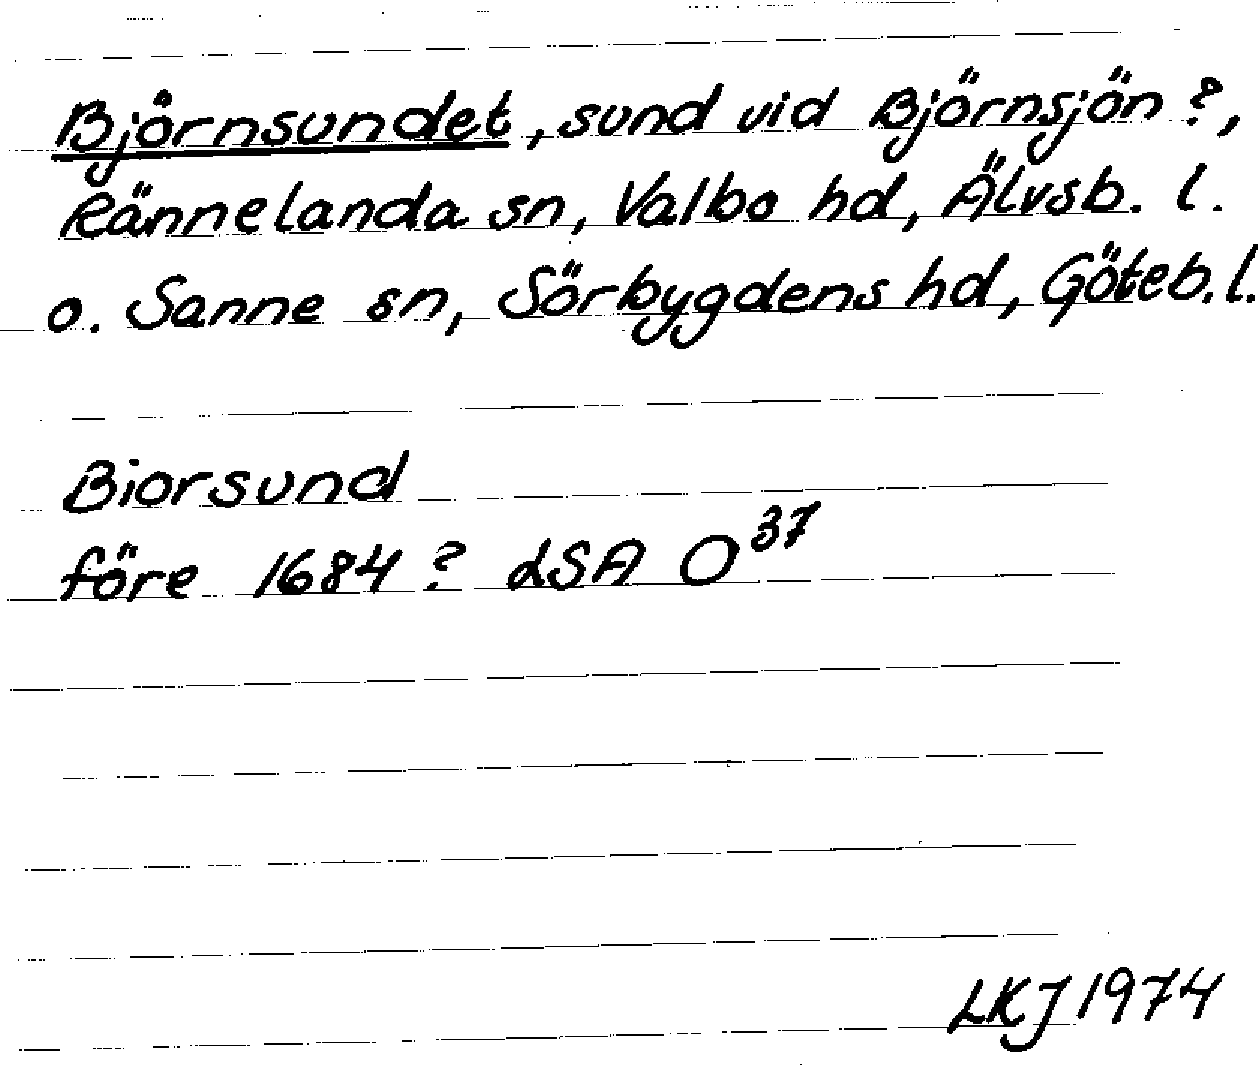 Björnsundet, sund vid Björnsjön?,
Rännelanda sn, Valbo hd, Älvsb. l.
o. Sanne sn, Sörbygdens hd, Göteb. l.
Biorsund
före 1684? LSA O³⁷
LKJ 1974